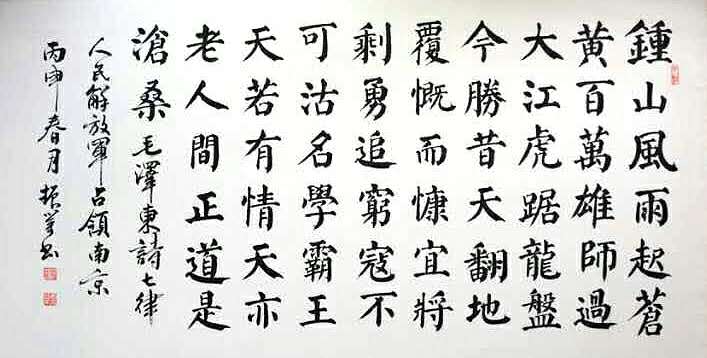 鍾山風雨起蒼
黄百萬雄師過
大江虎踞龍盤
今勝昔天翻地
覆慨而慷宜將
剩勇追窮寇不
可沽名學霸王
天若有情天亦
老人間正道是
滄桑毛澤東詩七律
人民解放軍占領南京
丙申春月振书